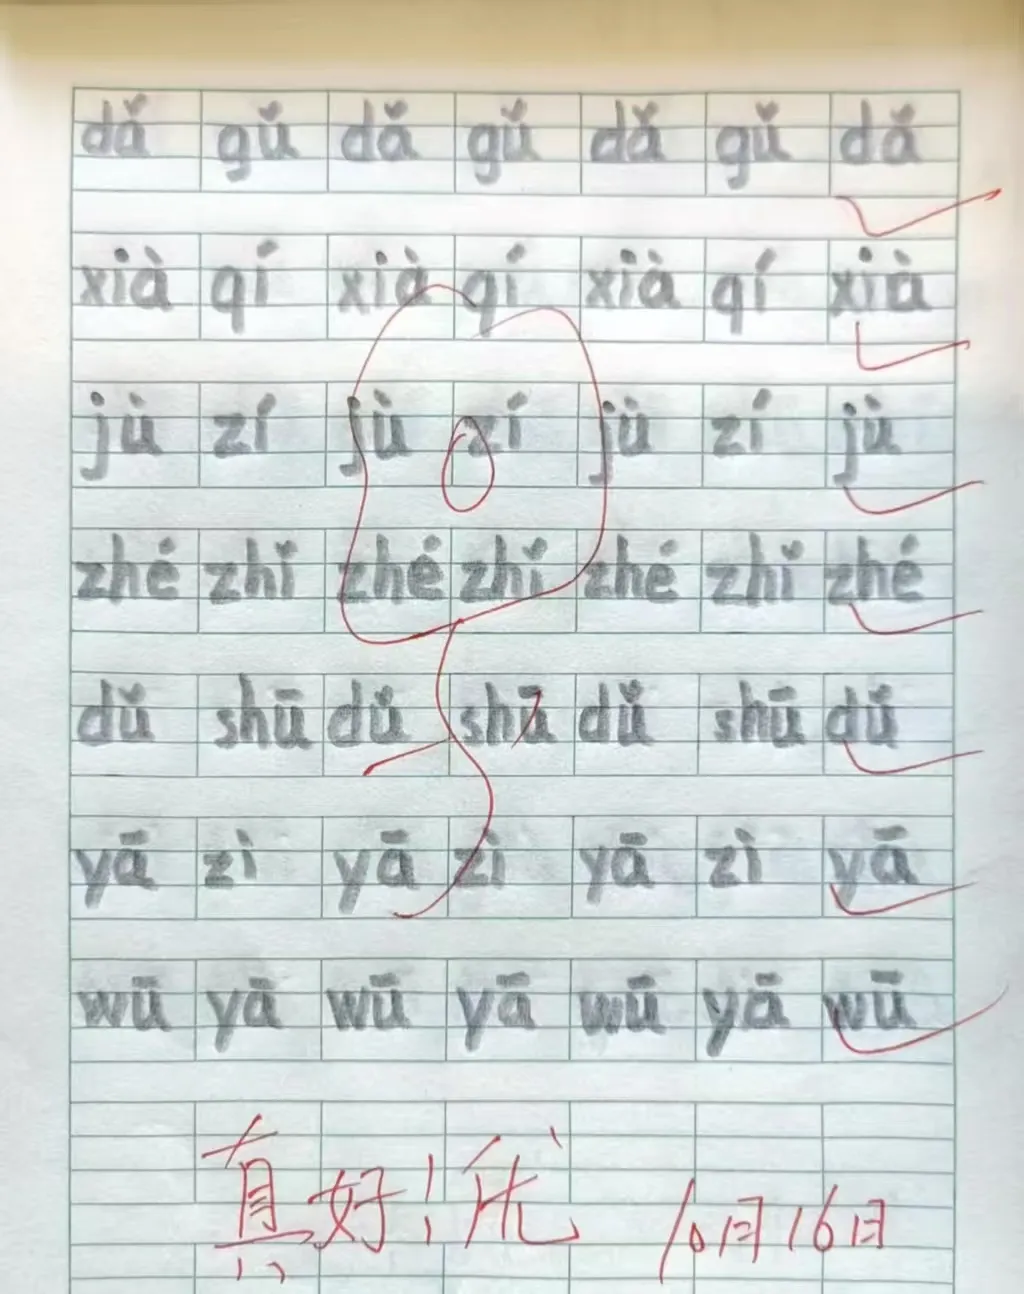 dǎ gǔ dǎ gǔ dǎ gǔ dǎ
xià qí xià qí xià qí xià
jù zí jù zí jù zí jù
zhé zhǐ zhé zhǐ zhé zhǐ zhé
dǔ shū dǔ shū dǔ shū dǔ
yā zì yā zì yā zì yā
wū yā wū yā wū yā wū
真好！优 10月16日